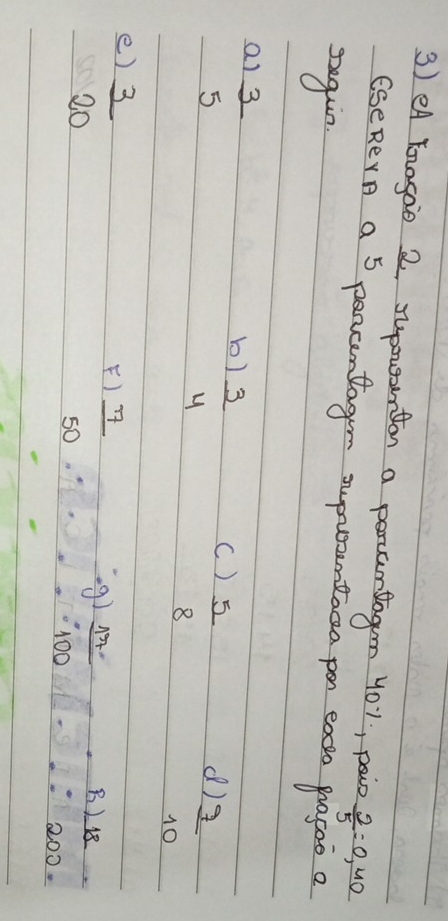 3) A fração 2, representar a porcentagem 40%, pois 2/5 = 0,40
ESCREVA a 5 porcentagem representada por cada fração a
seguir.
a) 3/5 b) 3/4 c) 5/8 d) 7/10
e) 3/20 f) 7/50 g) 17/100 h) 18/200